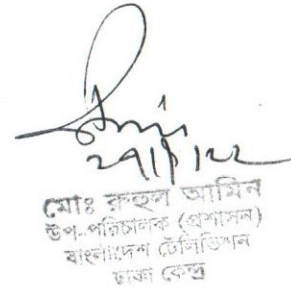 ২৭/৭/২২
মোঃ রুহুল আমিন
উপ-পরিচালক (প্রশাসন)
বাংলাদেশ টেলিভিশন
ঢাকা কেন্দ্র